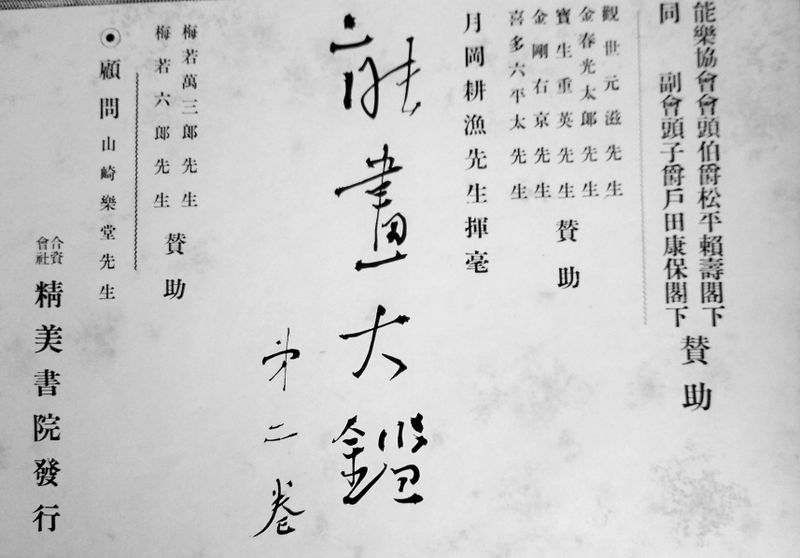 能樂協會會頭伯爵松平賴壽閣下
同 副會頭子爵戶田康保閣下
贊助
觀世元滋先生
金春光太郎先生
寶生重英先生
金剛右京先生
喜多六平太先生
贊助
月岡耕漁先生揮毫
能畫大鑑
第二卷
梅若萬三郎先生
梅若六郎先生
贊助
顧問 山崎樂堂先生
合資會社 精美書院發行